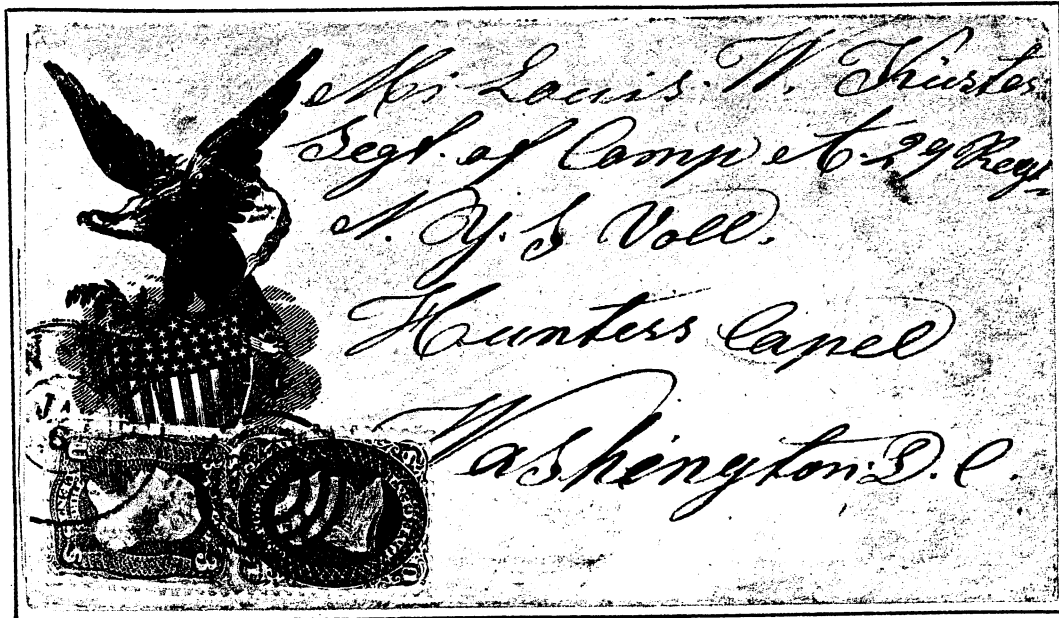 Mr Louis W. Küster
Segt. of Comp A. 29 Regt
N. Y. S Voll.
Hunters Capel
Washington D. C.
JA